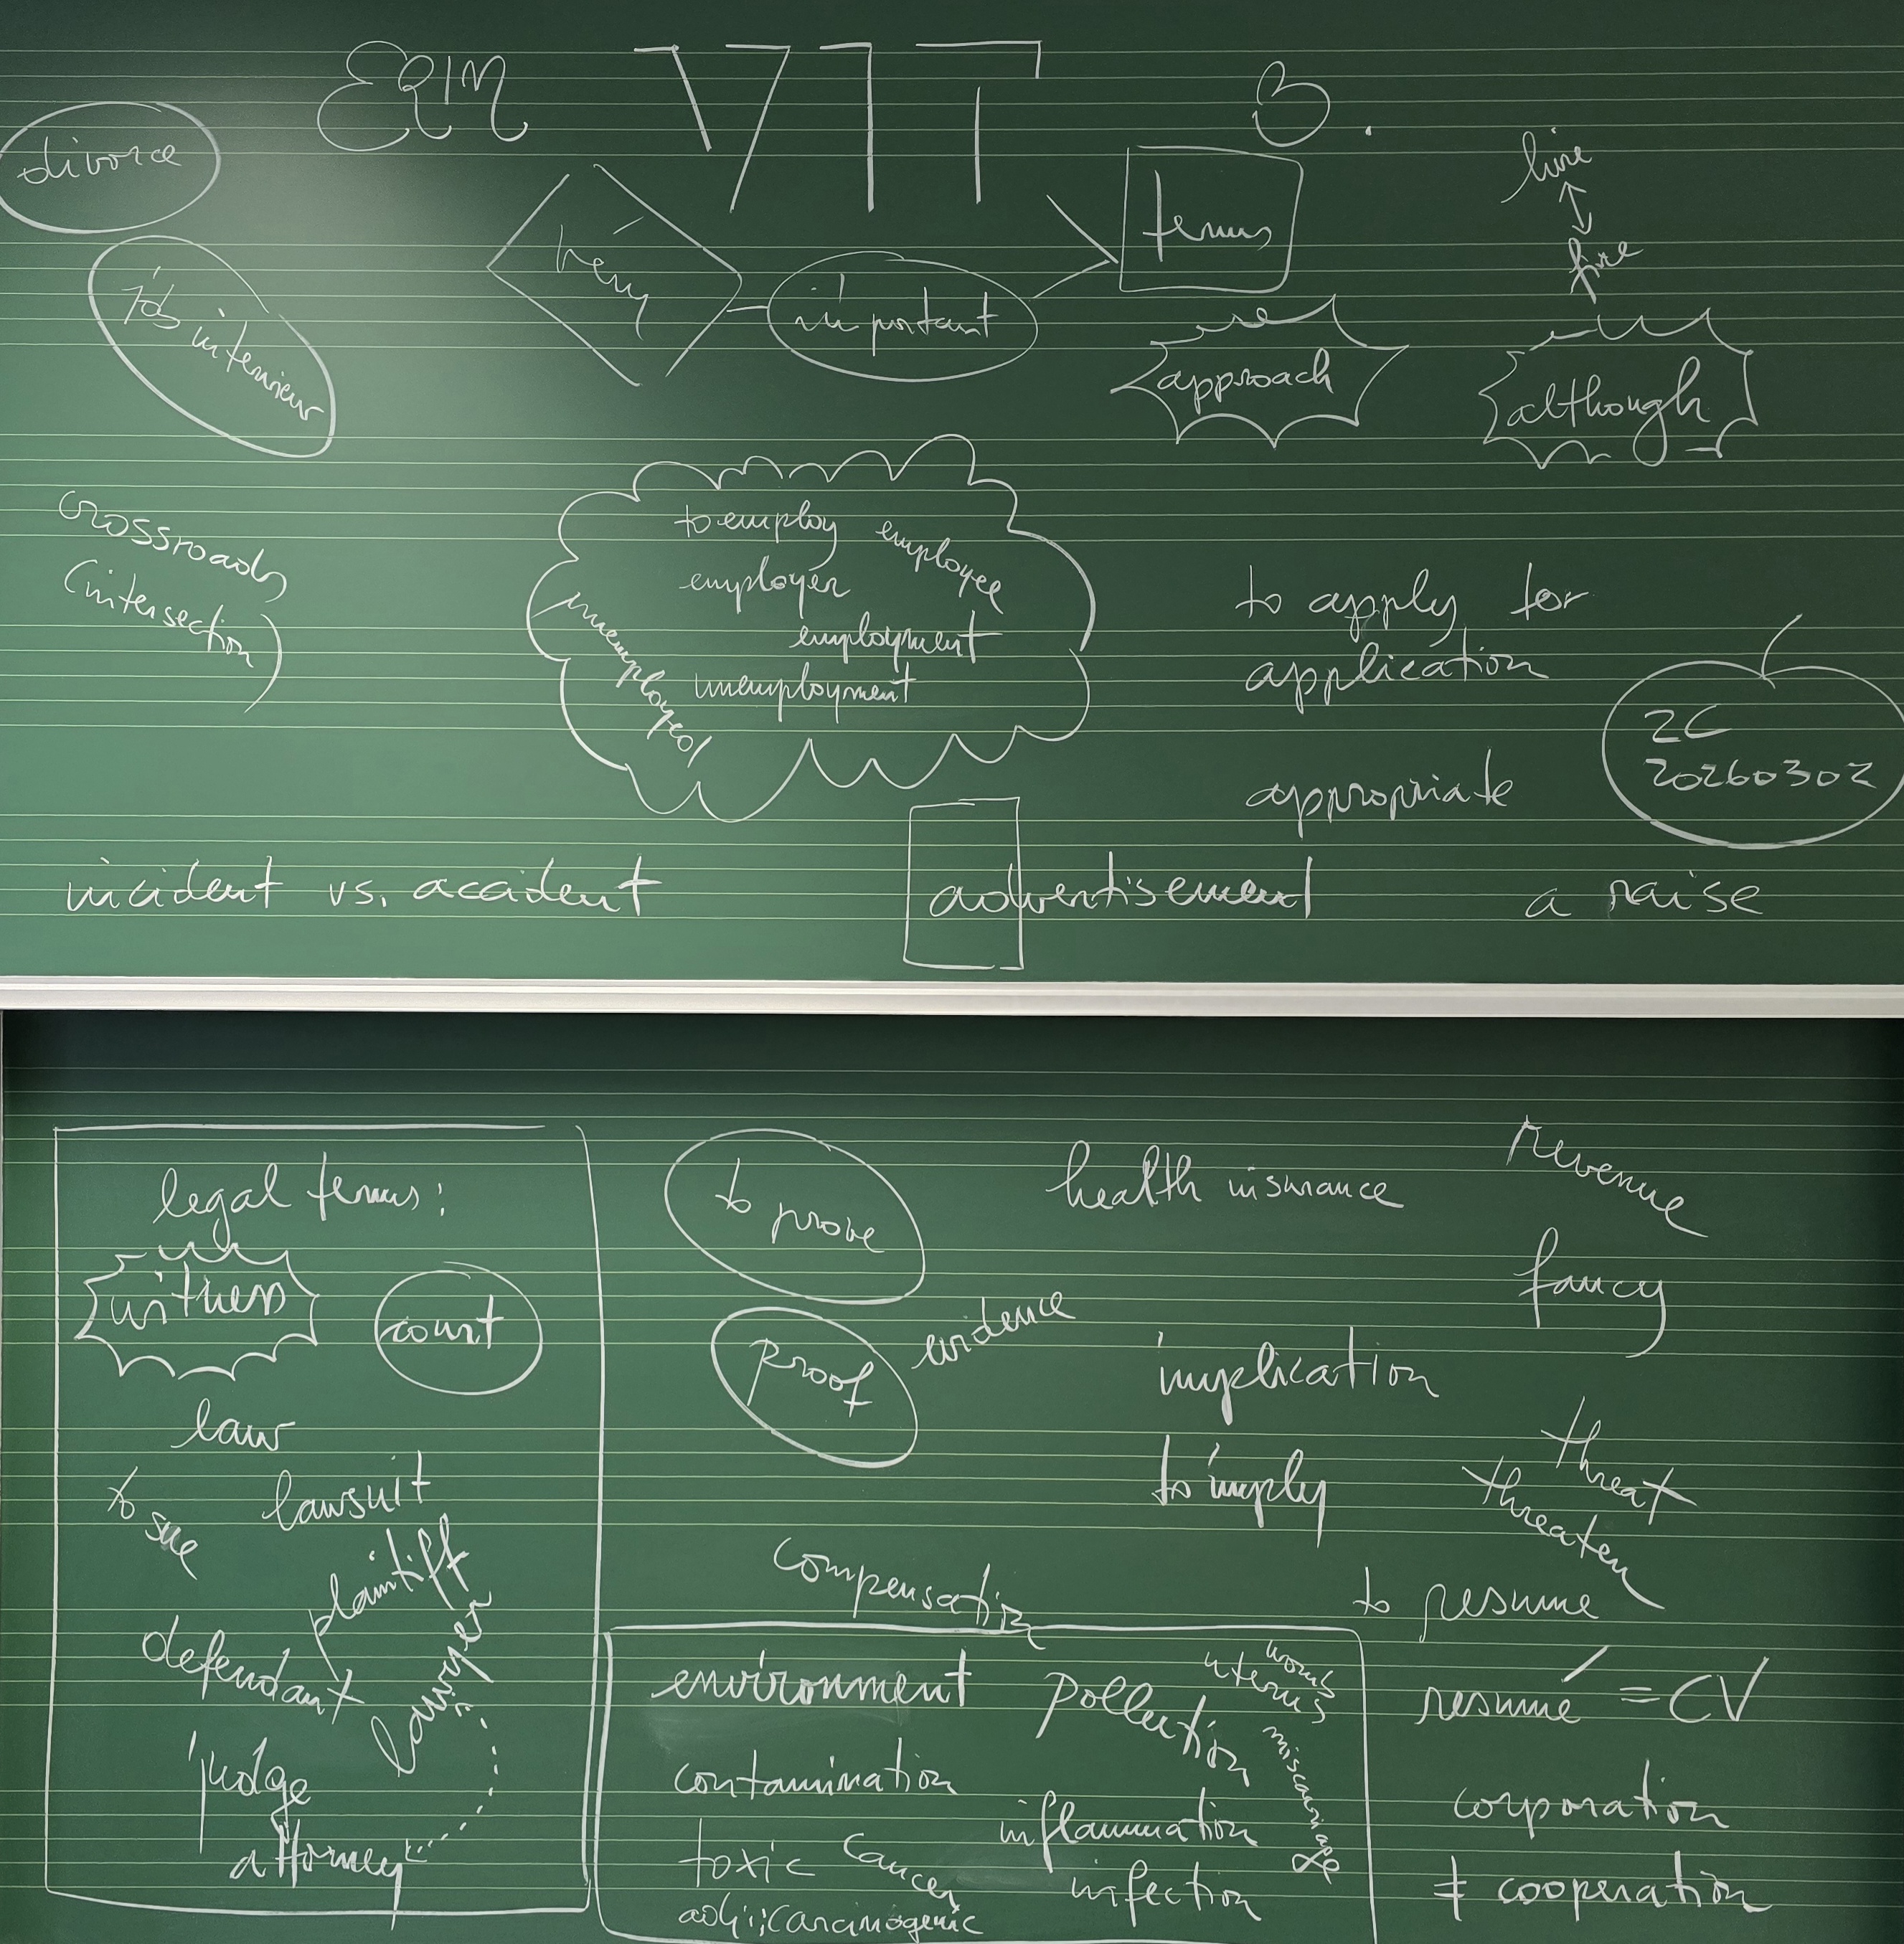 VIT
B.
divorce
hire
fire
terms
important
job interview
approach
although
crossroads
(intersection)
to employ
employee
employer
employment
unemployment
unemployed
to apply for
application
2C
20260302
appropriate
incident vs. accident
advertisement
a raise
legal terms:
witness
court
law
to sue
lawsuit
plaintiff
defendant
lawyer
judge
attorney
to prove
proof
evidence
health insurance
revenue
fancy
implication
to imply
threat
threaten
compensation
to resume
resumé = CV
corporation
≠ cooperation
environment
pollution
womb
uterus
miscarriage
contamination
inflammation
toxic
cancer
infection
adj.: carcinogenic